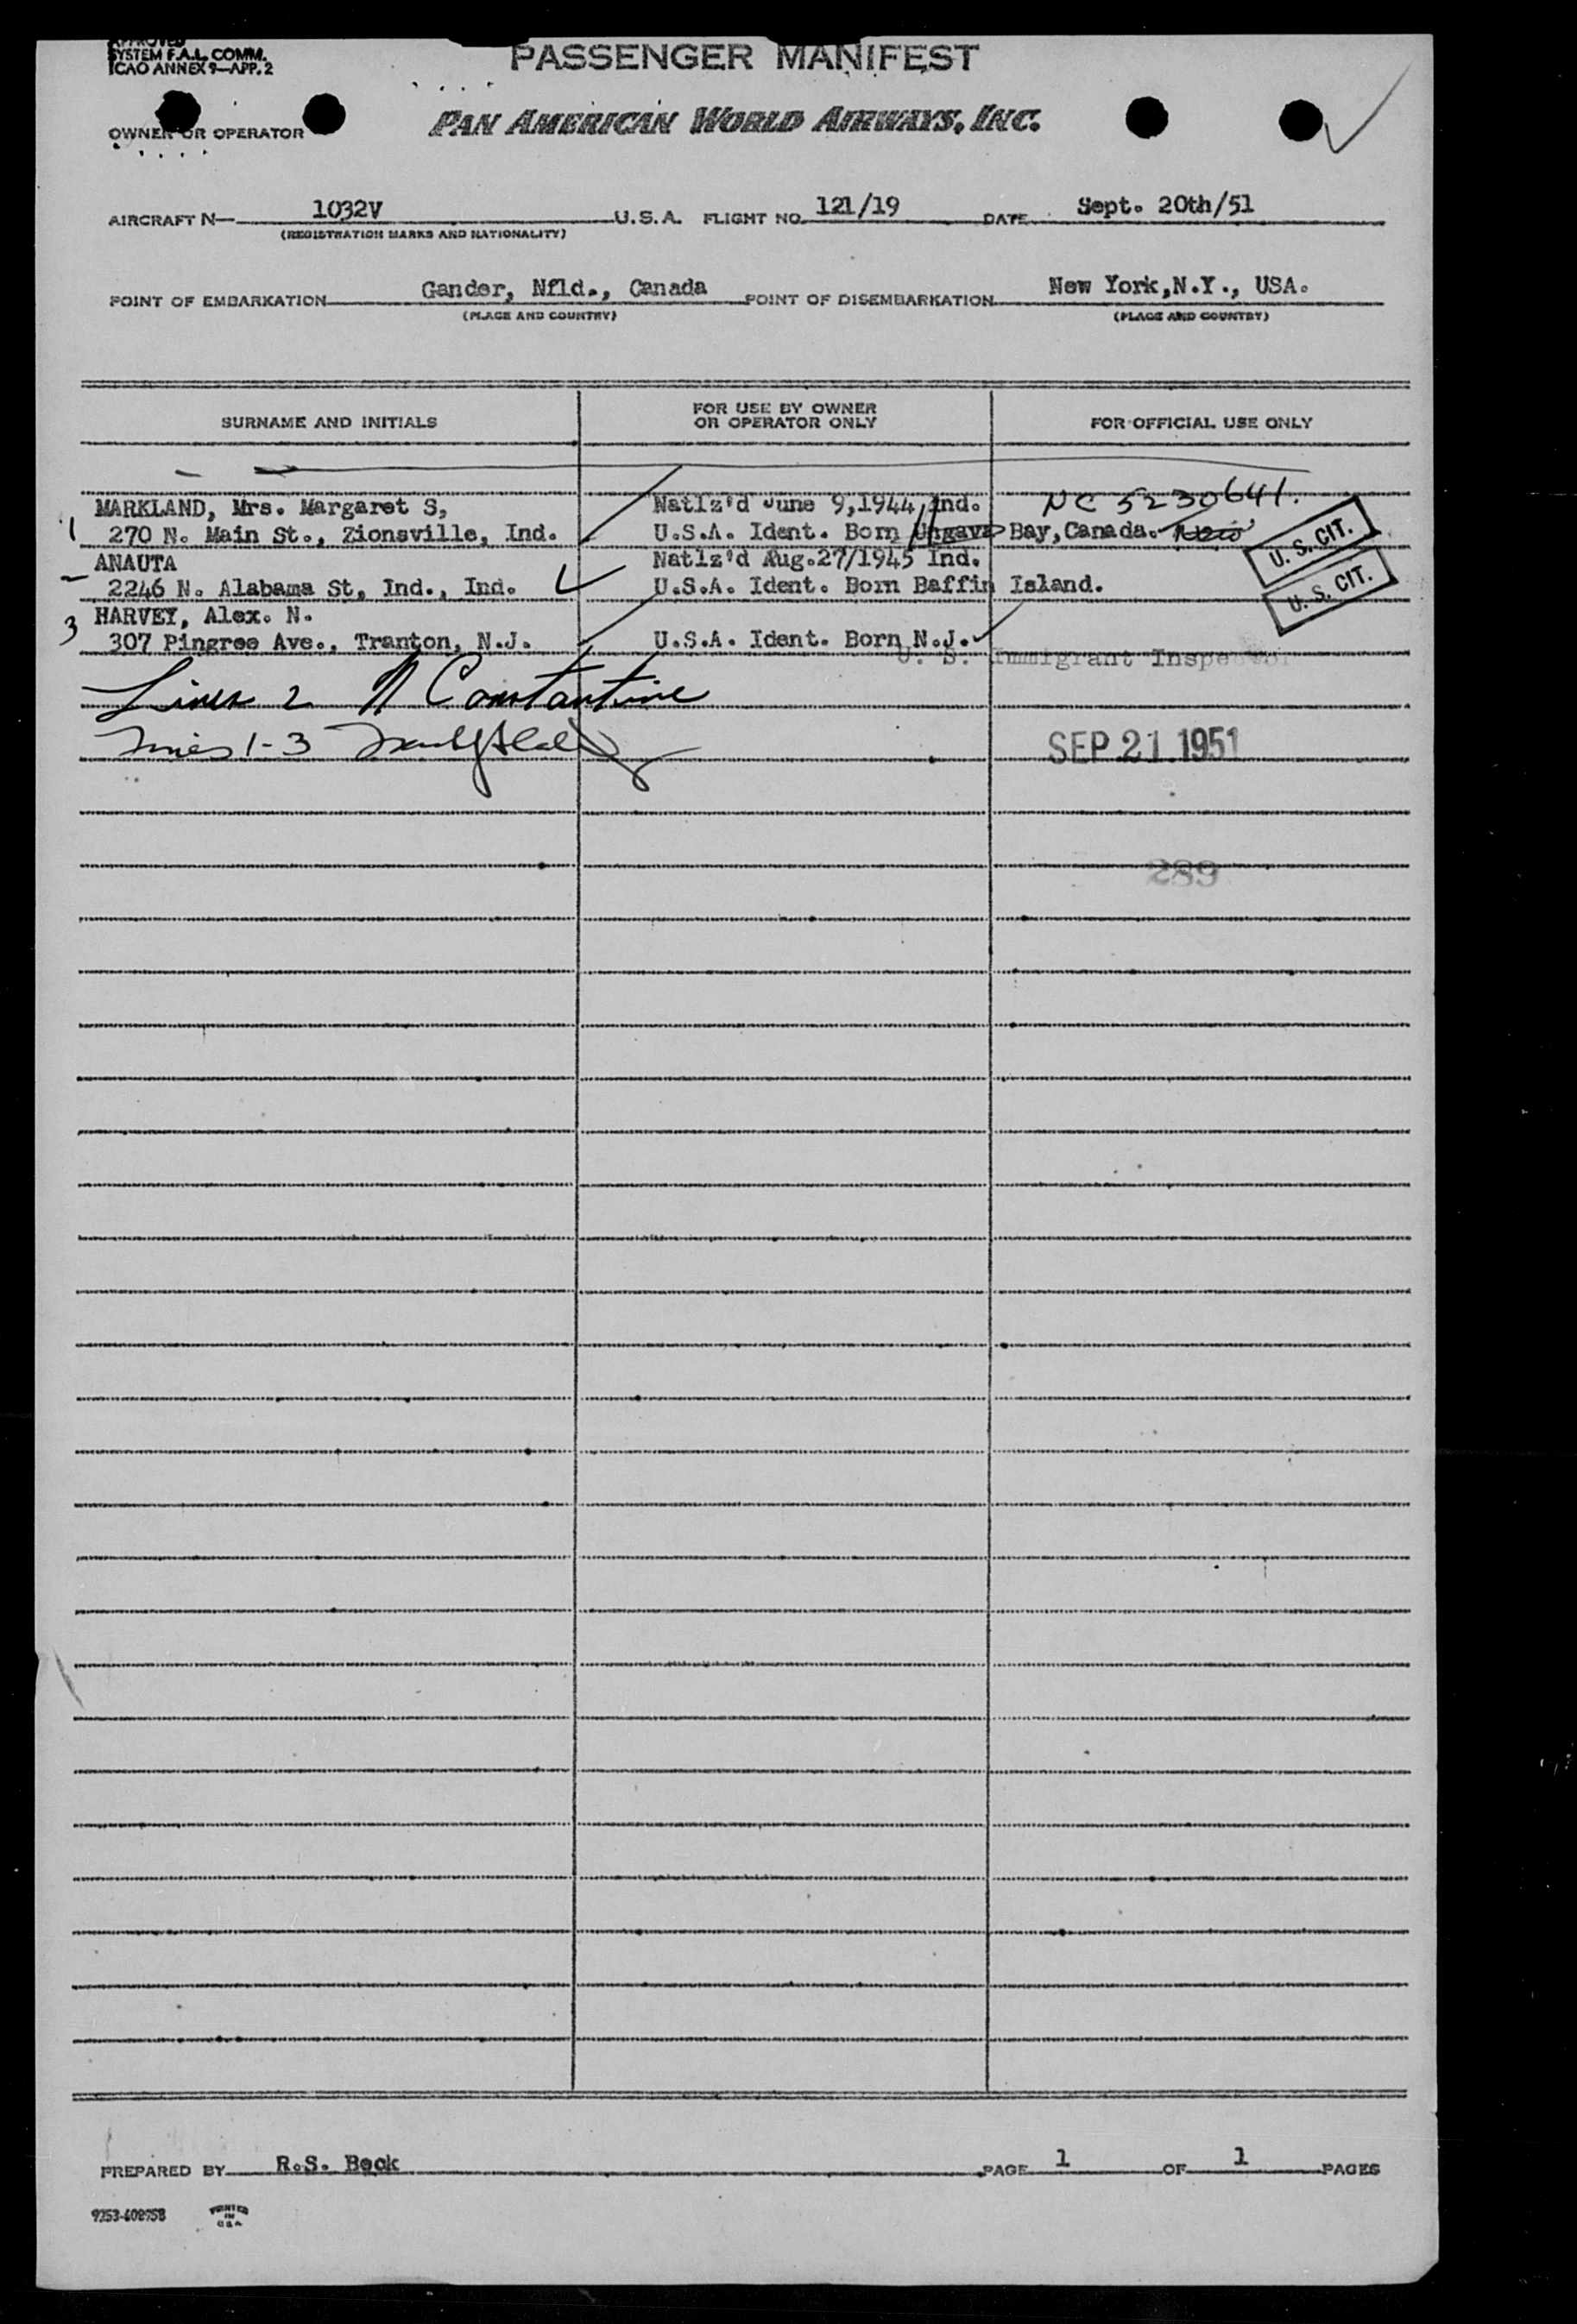 APPROVED
SYSTEM F.A.L. COMM.
ICAO ANNEX 9—APP. 2
PASSENGER MANIFEST
OWNER OR OPERATOR
PAN AMERICAN WORLD AIRWAYS, INC.
AIRCRAFT N— 1032V U.S.A. FLIGHT NO. 121/19 DATE Sept. 20th/51
(REGISTRATION MARKS AND NATIONALITY)
POINT OF EMBARKATION Gander, Nfld., Canada POINT OF DISEMBARKATION New York,N.Y., USA.
(PLACE AND COUNTRY) (PLACE AND COUNTRY)
SURNAME AND INITIALS FOR USE BY OWNER OR OPERATOR ONLY FOR OFFICIAL USE ONLY
MARKLAND, Mrs. Margaret S, Natlz'd June 9,1944 Ind. NC 5230641.
1 270 N. Main St., Zionsville, Ind. U.S.A. Ident. Born Ungava Bay,Canada. U. S. CIT.
ANAUTA Natlz'd Aug.27/1945 Ind.
2246 N. Alabama St, Ind., Ind. U.S.A. Ident. Born Baffin Island. U. S. CIT.
3 HARVEY, Alex. N.
307 Pingree Ave., Tranton, N.J. U.S.A. Ident. Born N.J.
U. S. Immigrant Inspector
Lines 2 Constantine
Lines 1-3
SEP 21 1951
289
PREPARED BY R.S. Beck PAGE 1 OF 1 PAGES
9353-402758 PRINTED IN U.S.A.